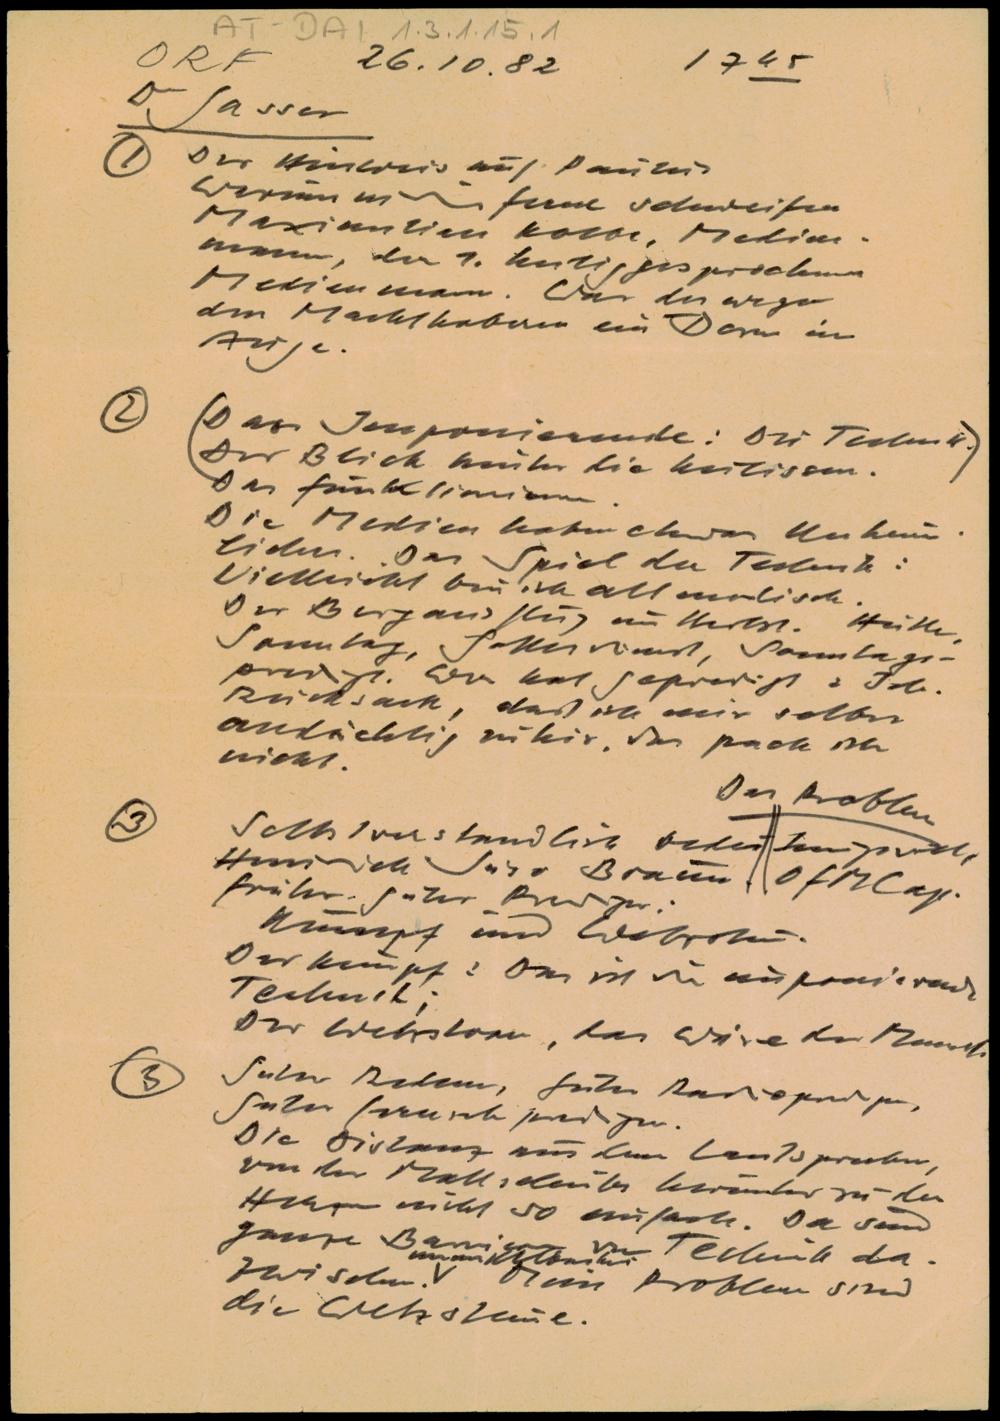 AT-DAI 1.3.1.15.1
ORF 26.10.82 17 45
Dr. Gasser
1 Der Hinweis auf Paulus
Warum in die Ferne schweifen
Maximilian Kolbe, Medien-
mann, der 1. heiliggesprochene
Medienmann. War deswegen
den Machthabern ein Dorn im
Auge.
2 (Das Imponierende: Die Technik.)
Der Blick hinter die Kulissen.
Das Funktionieren.
Die Medien haben etwas Unheim-
liches. Das Spiel der Technik:
Vielleicht bin ich altmodisch.
Der Bergausflug im Herbst. Hütte,
Sonntag, Gottesdienst, Sonntags-
predigt. Wer hat gepredigt: Ich.
Rucksack, daß ich mir selber
andächtig zuhör, das pack ich
nicht.
Das Problem
3 Selbstverständlich
Heinrich Suso Braun OFMCap.
früher. guter Prediger:
Kumpf und Wetzstein.
Der Kumpf: Das ist die imponierende
Technik;
Der Wetzstein, das wäre der Mensch
3 Guter Redner, guter Radioprediger,
guter Fernsehprediger.
Die Distanz aus dem Lautsprecher,
von der Mattscheibe herüber zu den
Herzen nicht so einfach. Da sind
ganze Barrieren von Technik da-
zwischen. Mein Problem sind
die Wetzsteine.